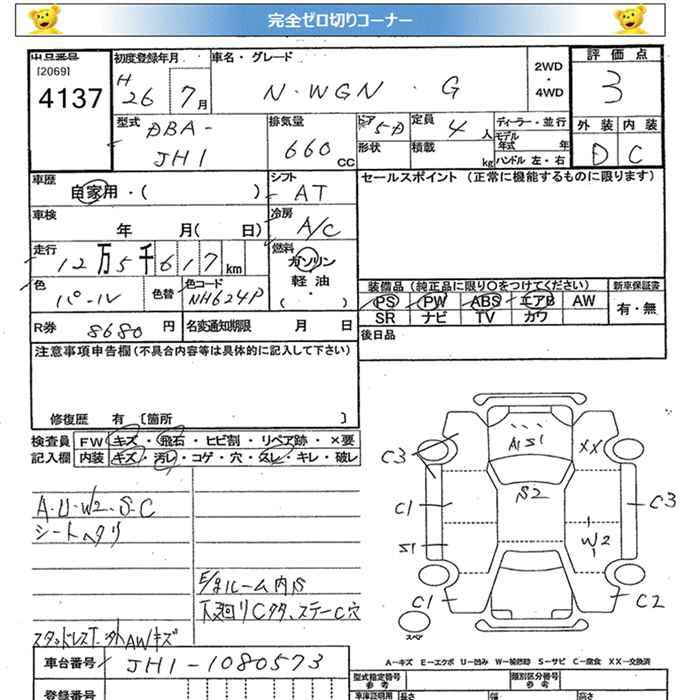 完全ゼロ切りコーナー
出品番号 初度登録年月 車名・グレード 2WD・4WD 評価点
[2069]
4137 H26 7月 N-WGN・G 3
型式 DBA-JH1 排気量 660cc ドア 5D 定員 4人 ディーラー・並行 外装 内装
形状 積載 kg モデル年式 年 D C
ハンドル 左・右
車歴 自家用・( ) シフト AT セールスポイント (正常に機能するものに限ります)
車検 年 月( 日) 冷房 A/C
走行 12万5千617km 燃料 ガソリン 軽油 ( ・ )
色 パール 色替 色コード NH624P 装備品 (純正品に限り○をつけてください) 新車保証書
PS PW ABS エアB AW 有・無
SR ナビ TV カワ
R券 8680円 名変通知期限 月 日 後日品
注意事項申告欄 (不具合内容等は具体的に記入して下さい)
修復歴 有 [箇所 ]
検査員 FW キズ・飛石・ヒビ割・リペア跡・×要
記入欄 内装 キズ・汚レ・コゲ・穴・スレ・キレ・破レ
A・U・W2・S・C
シートヘタリ
E/gルーム内S
下廻りCタ、ステーC穴
スタッドレスT・外AWキズ
A1 S1 XX
C3 S2 C1 C3
S1 W2
C1 C2
スペア
A－キズ E－エクボ U－凹み W－補修跡 S－サビ C－腐食 XX－交換済
車台番号 JH1-1080573 型式指定番号 参考 類別区分番号 参考
登録番号 車庫証明用 参考 長さ 幅 高さ